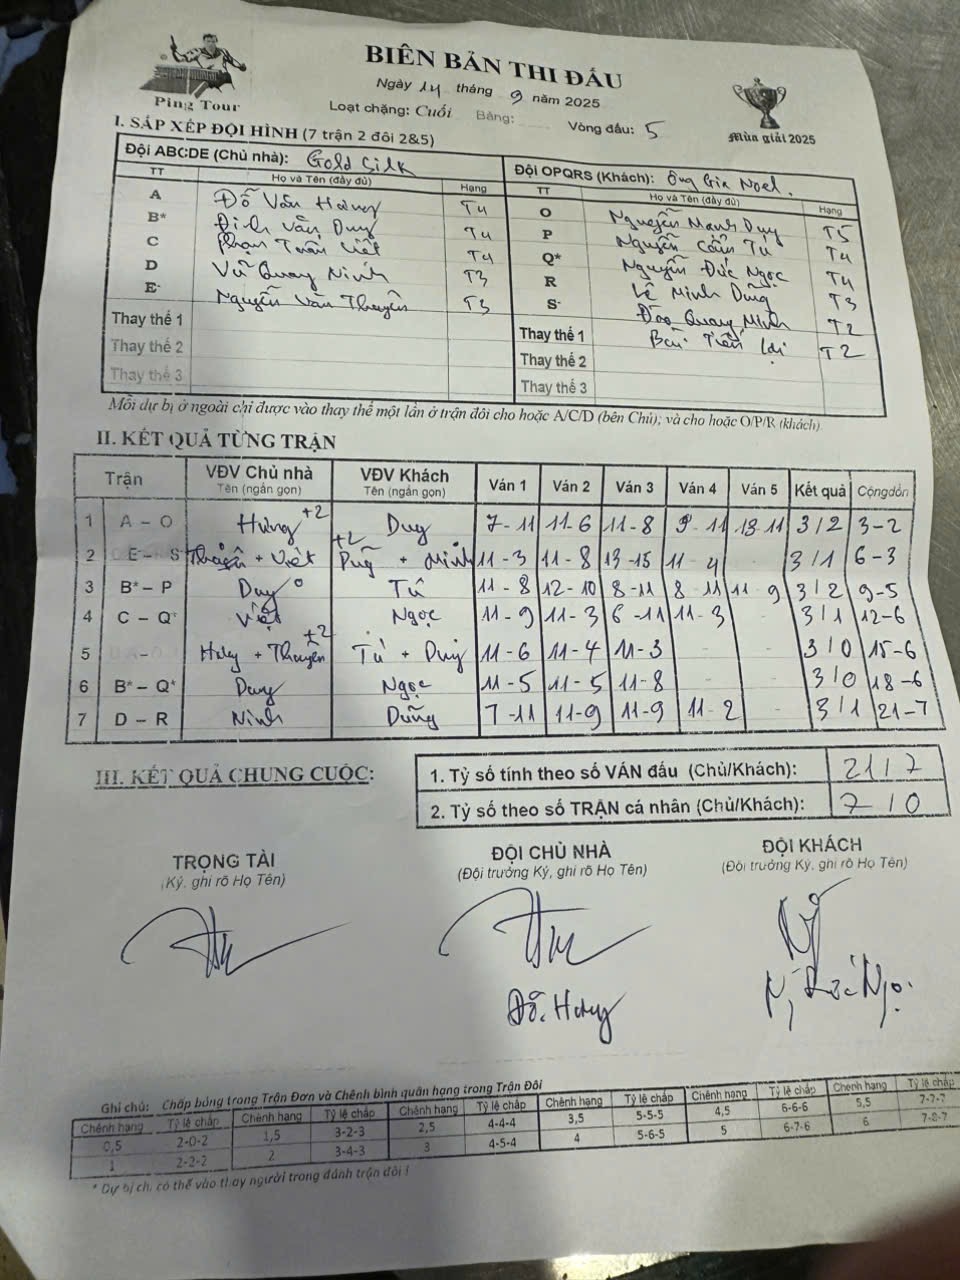 BIÊN BẢN THI ĐẤU
Ping Tour
Ngày 14 tháng 9 năm 2025
Loạt chặng: Cuối Bảng: Vòng đấu: 5
Mùa giải 2025
I. SẮP XẾP ĐỘI HÌNH (7 trận 2 đôi 2&5)
Đội ABCDE (Chủ nhà): Gold Silk Đội OPQRS (Khách): Ông Già Noel.
TT Họ và Tên (đầy đủ) Hạng TT Họ và Tên (đầy đủ) Hạng
A Đỗ Văn Hưng T4 O Nguyễn Mạnh Duy T5
B* Đinh Văn Duy T4 P Nguyễn Cẩm Tú T4
C Phạm Trần Việt T4 Q* Nguyễn Đức Ngọc T4
D Vũ Quang Ninh T3 R Lê Minh Dũng T3
E- Nguyễn Văn Thuyên T3 S- Đào Quang Minh T2
Thay thế 1 Thay thế 1 Bùi Tiến Lợi T2
Thay thế 2 Thay thế 2
Thay thế 3 Thay thế 3
Mỗi dự bị ở ngoài chỉ được vào thay thế một lần ở trận đôi cho hoặc A/C/D (bên Chủ); và cho hoặc O/P/R (khách).
II. KẾT QUẢ TỪNG TRẬN
Trận VĐV Chủ nhà VĐV Khách Ván 1 Ván 2 Ván 3 Ván 4 Ván 5 Kết quả Cộng dồn
Tên (ngắn gọn) Tên (ngắn gọn)
1 A – O Hưng +2 Duy 7-11 11-6 11-8 9-11 13-11 3/2 3-2
2 E- – S Thuyên + Việt +2 Dũng + Minh 11-3 11-8 13-15 11-4 3/1 6-3
3 B* – P Duy 0 Tú 11-8 12-10 8-11 8-11 11-9 3/2 9-5
4 C – Q* Việt Ngọc 11-9 11-3 6-11 11-3 3/1 12-6
5 - Hưng + Thuyên +2 Tú + Duy 11-6 11-4 11-3 - - 3/0 15-6
6 B* – Q* Duy Ngọc 11-5 11-5 11-8 - - 3/0 18-6
7 D – R Ninh Dũng 7-11 11-9 11-9 11-2 - 3/1 21-7
III. KẾT QUẢ CHUNG CUỘC:
1. Tỷ số tính theo số VÁN đấu (Chủ/Khách): 21/7
2. Tỷ số theo số TRẬN cá nhân (Chủ/Khách): 7/0
TRỌNG TÀI ĐỘI CHỦ NHÀ ĐỘI KHÁCH
(Ký, ghi rõ Họ Tên) (Đội trưởng Ký, ghi rõ Họ Tên) (Đội trưởng Ký, ghi rõ Họ Tên)
Đỗ. Hưng N. Đức Ngọc
Ghi chú: Chấp bóng trong Trận Đơn và Chênh bình quân hạng trong Trận Đôi
Chênh hạng Tỷ lệ chấp Chênh hạng Tỷ lệ chấp Chênh hạng Tỷ lệ chấp Chênh hạng Tỷ lệ chấp Chênh hạng Tỷ lệ chấp Chênh hạng Tỷ lệ chấp
0,5 2-0-2 1,5 3-2-3 2,5 4-4-4 3,5 5-5-5 4,5 6-6-6 5,5 7-7-7
1 2-2-2 2 3-4-3 3 4-5-4 4 5-6-5 5 6-7-6 6 7-8-7
* Dự bị chỉ có thể vào thay người trong đánh trận đôi !